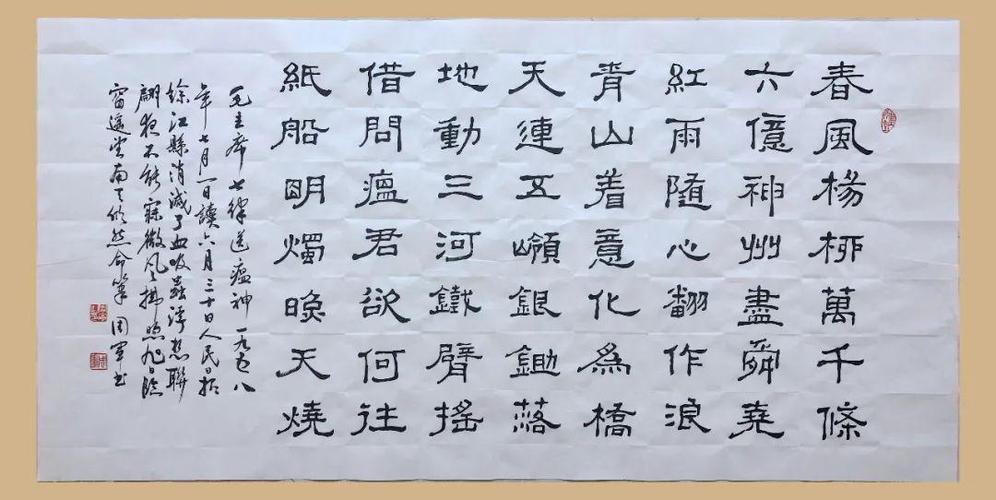 春風楊柳萬千條
六億神州盡舜堯
紅雨随心翻作浪
青山着意化為橋
天連五嶺銀鋤落
地動三河鐵臂搖
借問瘟君欲何往
紙船明燭晚天燒
毛主席七律送瘟神一九五八
年七月一日讀六月三十日人民日报
餘江縣消滅了血吸蟲浮想聯
翩夜不能寐微風拂煦旭日臨
窗遥望南天欣然命筆 周軍书